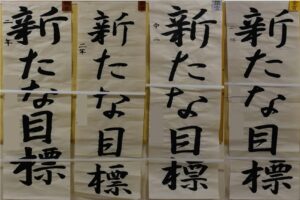 新たな目標
新たな目標
新たな目標
二年
新たな目標
二年